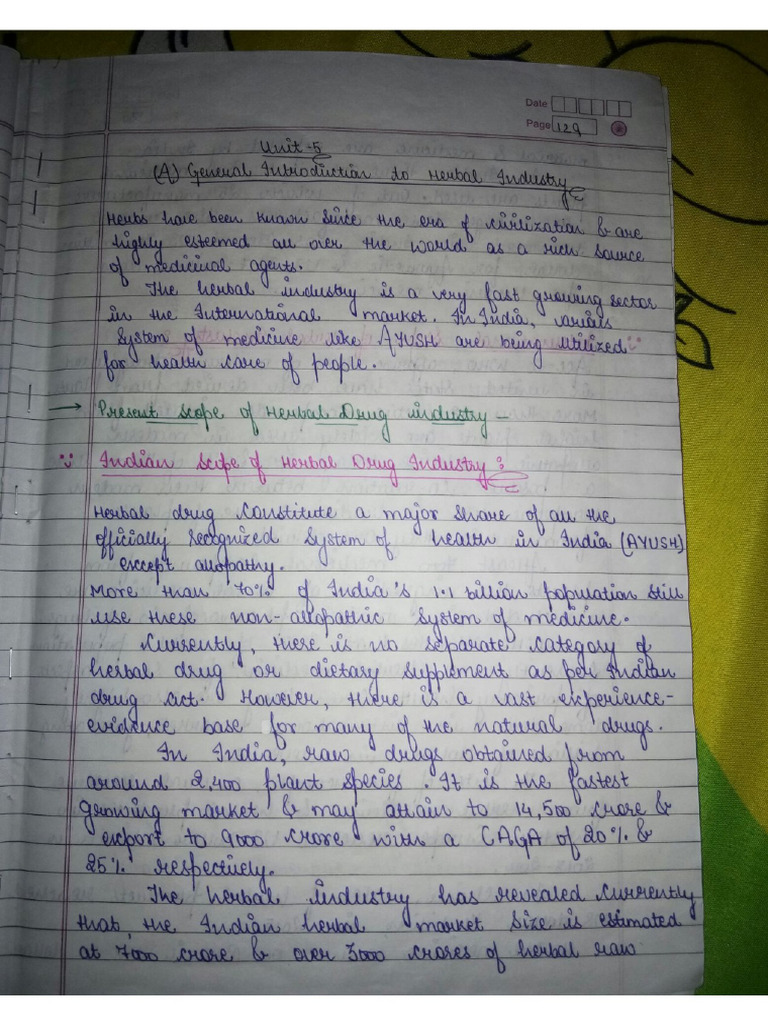 Date
Page 129
Unit-5
(A) General Introduction to Herbal Industry
Herbs have been known since the era of civilization & are
highly esteemed all over the world as a rich source
of medicinal agents.
The herbal industry is a very fast growing sector
in the International market. In India, various
system of medicine like AYUSH are being utilized
for health care of people.
→ Present scope of Herbal Drug industry –
Indian Scope of Herbal Drug Industry :
Herbal drug constitute a major share of all the
officially recognized system of health in India (AYUSH)
except allopathy.
More than 70% of India's 1.1 billion population still
use these non-allopathic system of medicine.
Currently, there is no separate category of
herbal drug or dietary supplement as per Indian
drug act. However, there is a vast experience-
evidence base for many of the natural drugs.
In India, raw drugs obtained from
around 2,400 plant species. It is the fastest
growing market & may attain to 14,500 crore &
export to 9000 crore with a CAGA of 20% &
25% respectively.
The herbal industry has revealed currently
that, the Indian herbal market size is estimated
at 7000 crore & over 3000 crores of herbal raw